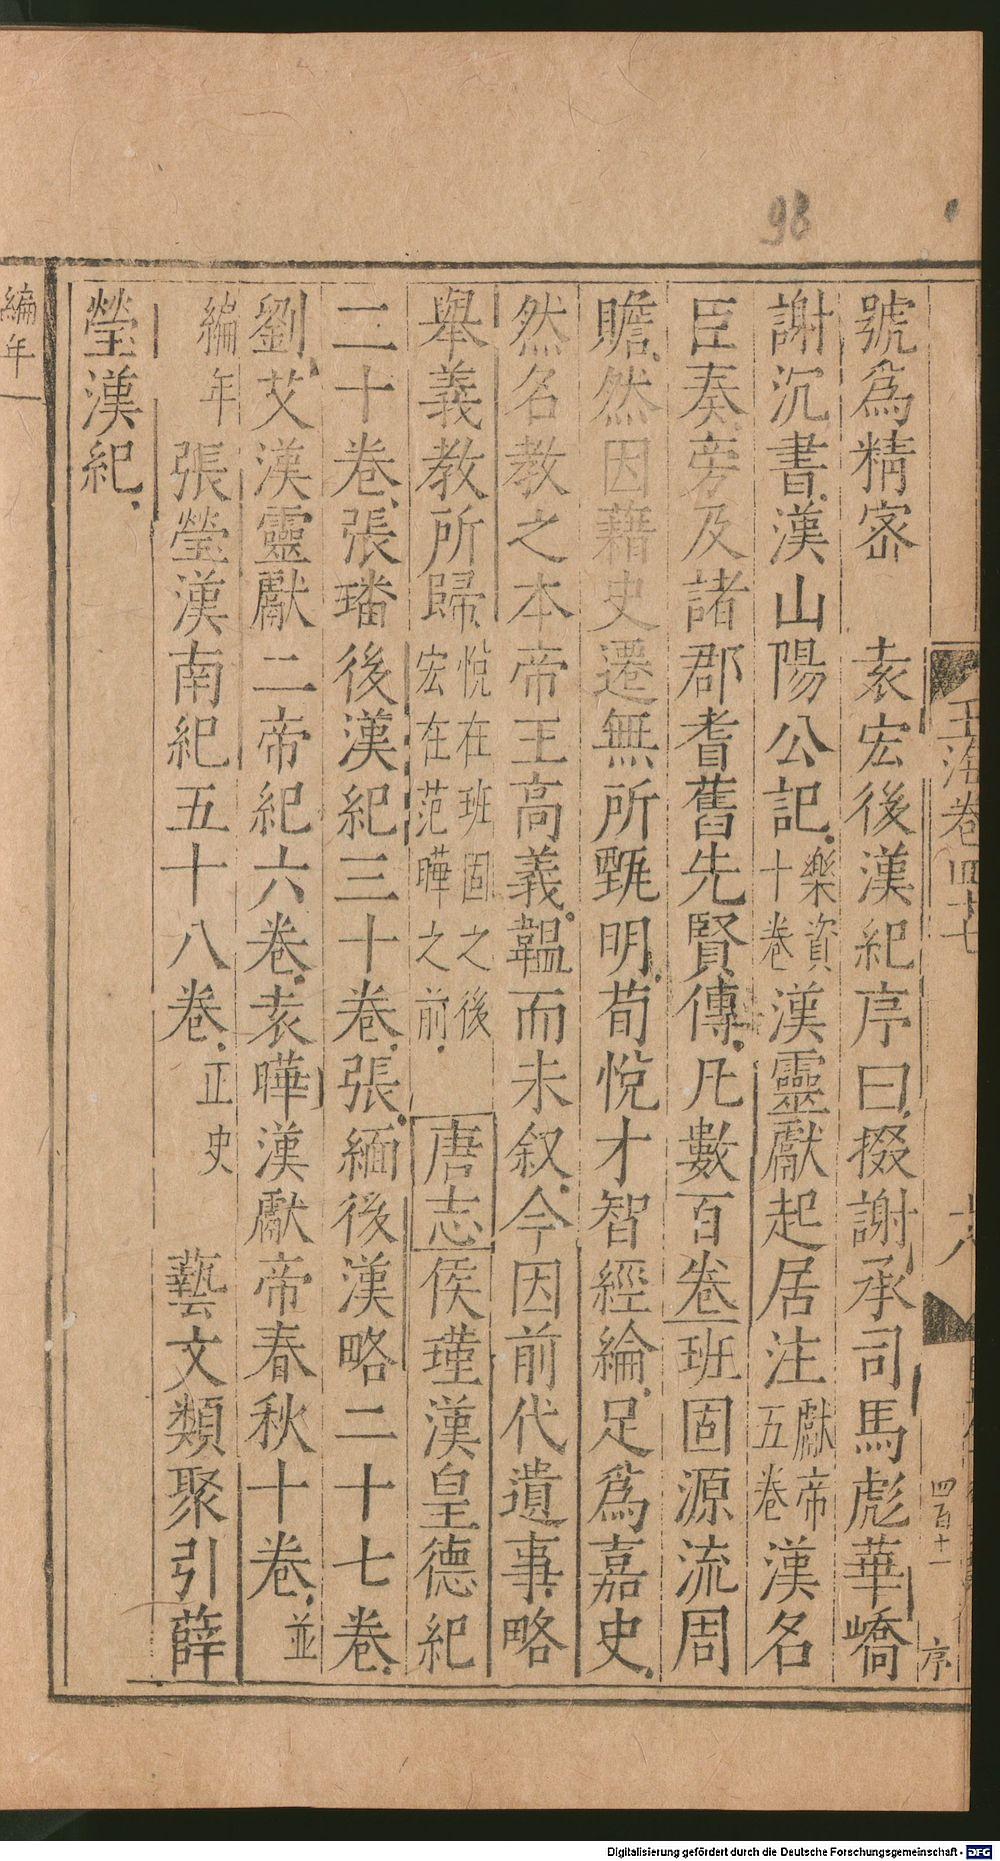 98
玉海卷四十七
六
四百十一
序
號為精密　袁宏後漢紀序曰掇謝承司馬彪華嶠
謝沉書漢山陽公記樂資十卷漢靈獻起居注獻帝五卷漢名
臣奏旁及諸郡耆舊先賢傳凡數百卷班固源流周
贍然因藉史遷無所甄明荀悅才智經綸足為嘉史
然名教之本帝王高義韞而未叙今因前代遺事略
舉義教所歸悅在班固之後宏在范曄之前　唐志侯瑾漢皇德紀
二十卷張璠後漢紀三十卷張緬後漢略二十七卷
劉艾漢靈獻二帝紀六卷袁曄漢獻帝春秋十卷並
編年　張瑩漢南紀五十八卷正史　藝文類聚引薛
瑩漢紀
編年
Digitalisierung gefördert durch die Deutsche Forschungsgemeinschaft - DFG